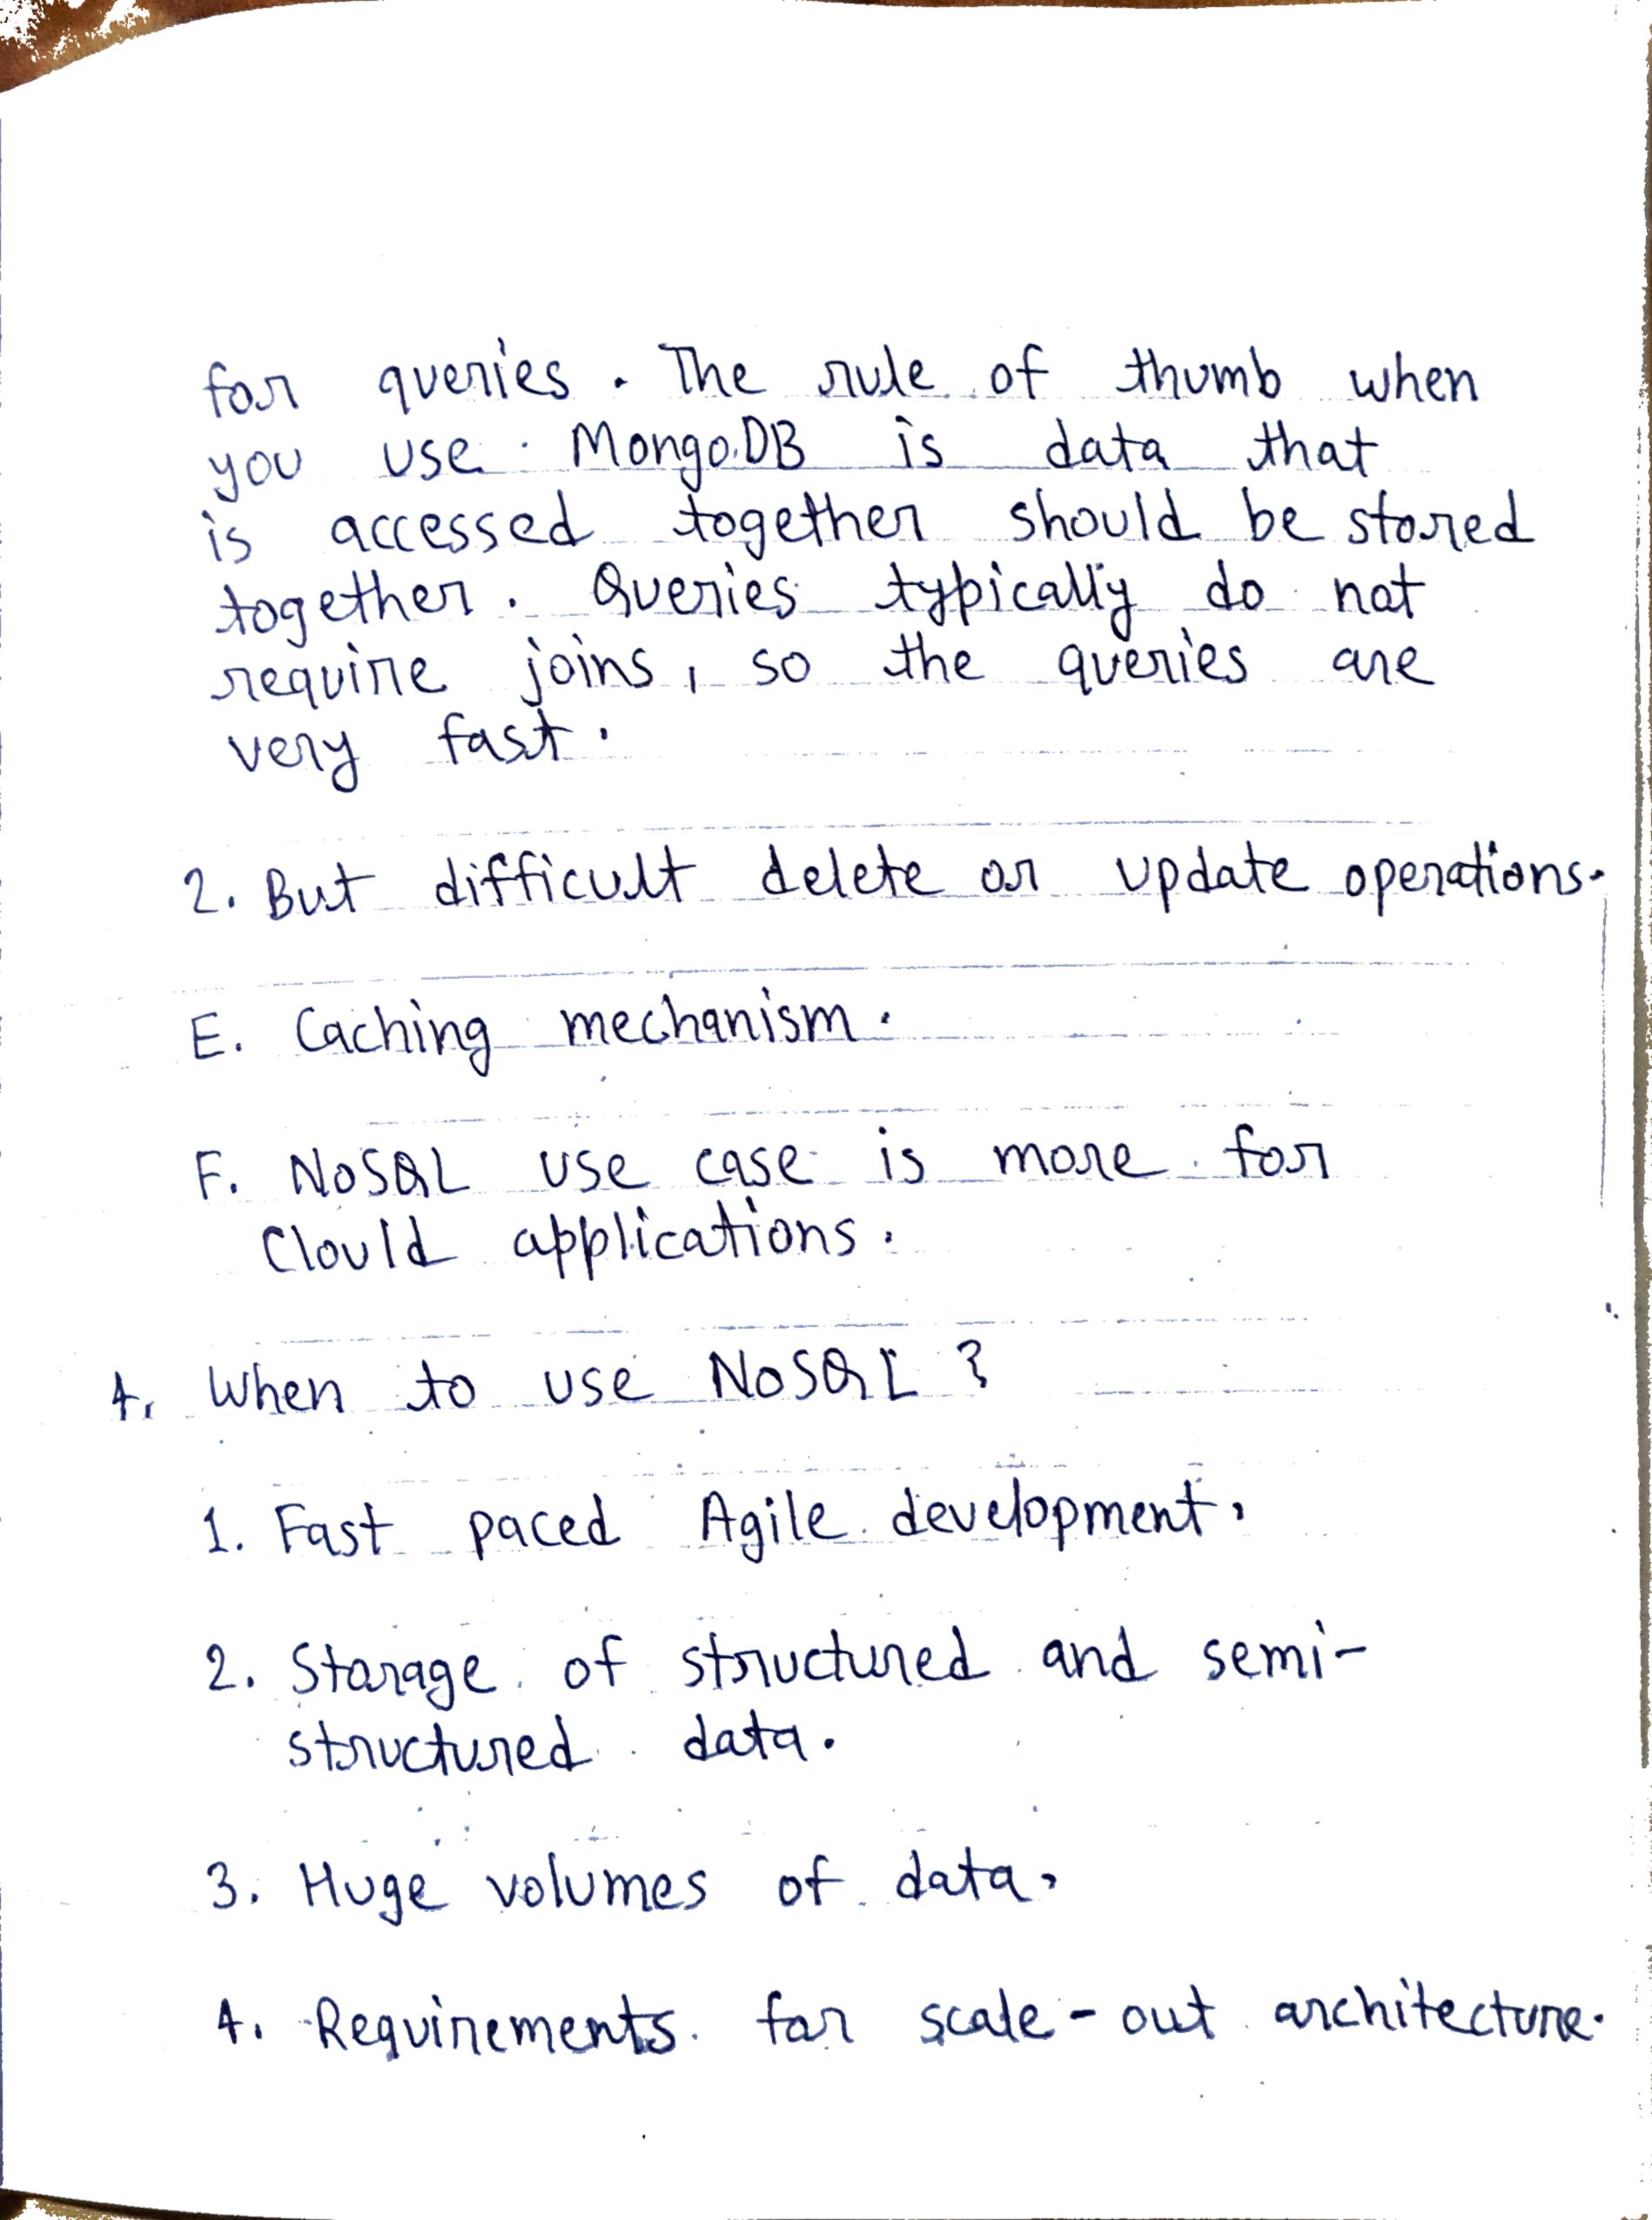 for queries. The rule of thumb when
you use MongoDB is data that
is accessed together should be stored
together. Queries typically do not
require joins, so the queries are
very fast.
2. But difficult delete or update operations.
E. Caching mechanism.
F. NoSQL use case is more for
Clould applications.
4. When to use NoSQL ?
1. Fast paced Agile development.
2. Storage of structured and semi-
structured data.
3. Huge volumes of data.
4. Requirements for scale-out architecture.